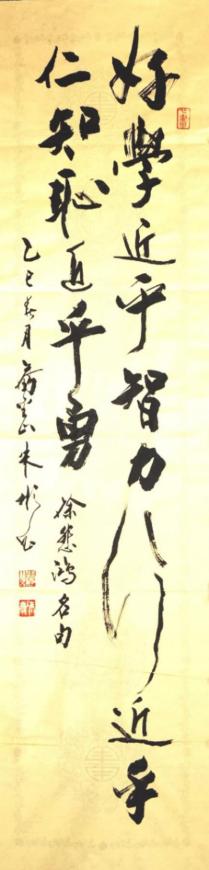 好學近乎智力行近乎
仁知恥近乎勇
徐悲鴻名句
乙巳春月